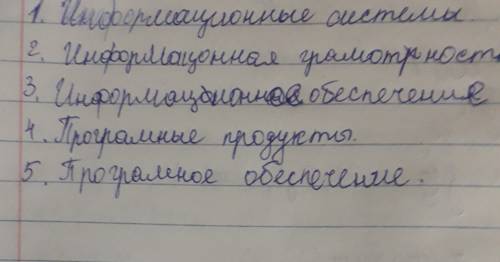 1. Информационные системы.
2. Информацонная грамотрность
3. Информационное обеспечение
4. Програмные продукты.
5. Програмное обеспечение.